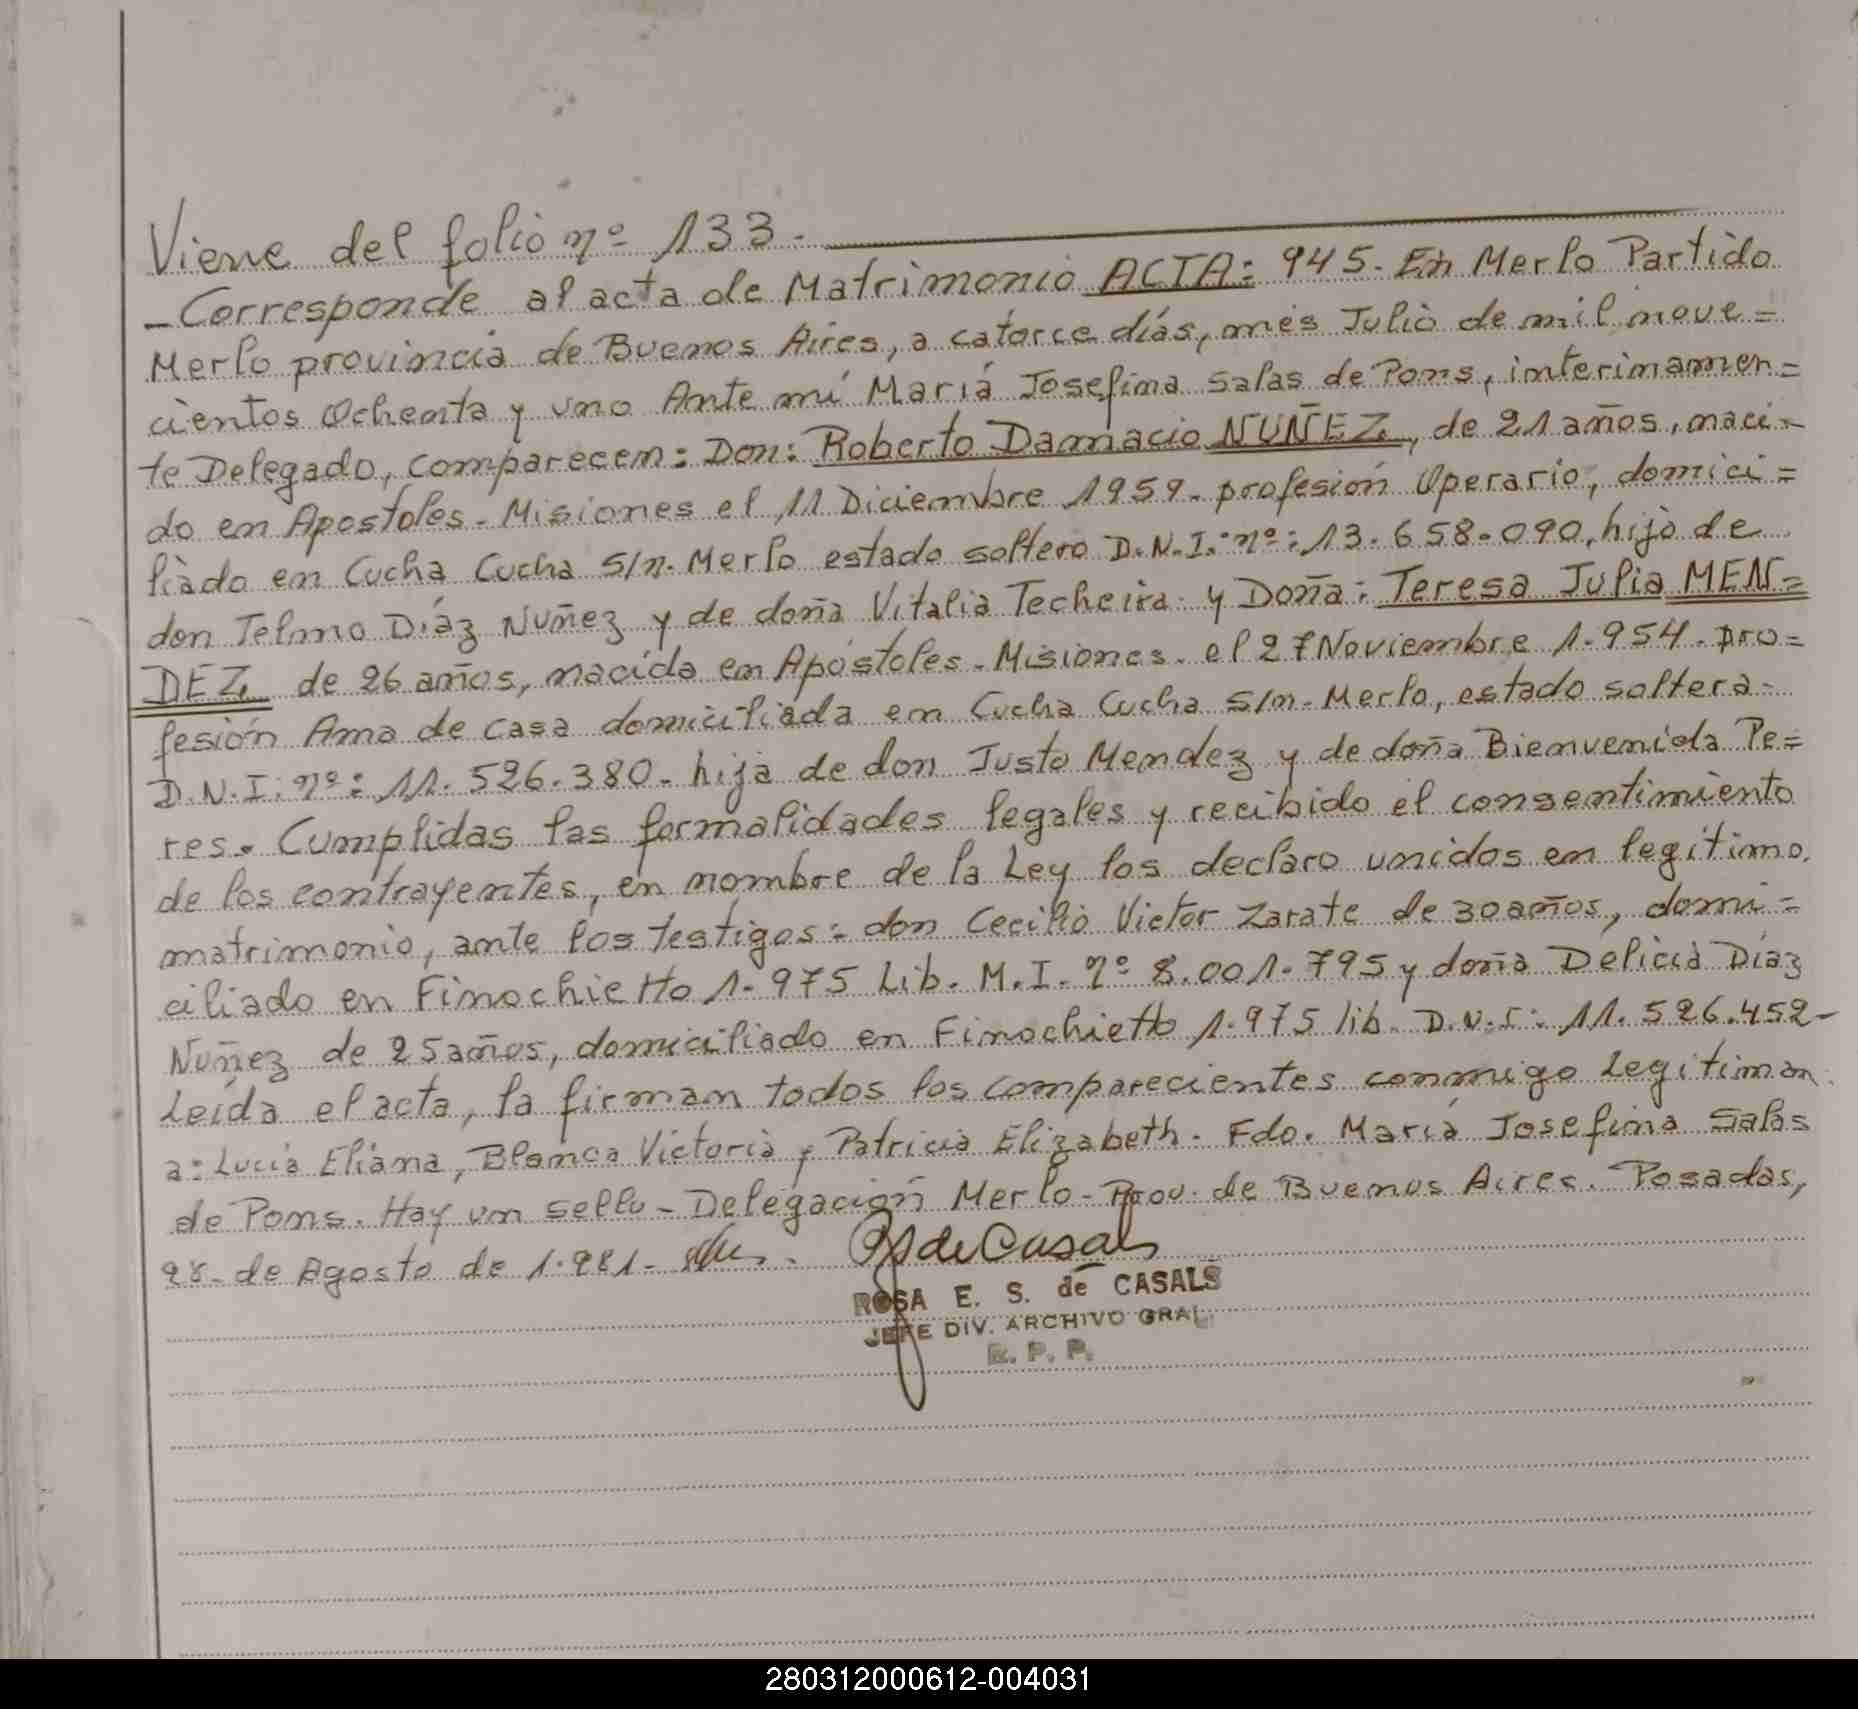 Viene del folio nº 133.
- Corresponde al acta de Matrimonio ACTA: 945. En Merlo Partido
Merlo provincia de Buenos Aires, a catorce días, mes Julio de mil nove=
cientos Ochenta y uno Ante mí María Josefina Salas de Pons, interinamen=
te Delegado, comparecen: Don: Roberto Damacio NUÑEZ, de 21 años, naci-
do en Apostoles - Misiones el 11 Diciembre 1959- profesión Operario, domici=
liado en Cucha Cucha S/n. Merlo estado soltero D.N.I. nº: 13.658.090, hijo de
don Telmo Díaz Nuñez y de doña Vitalia Techeira y Doña: Teresa Julia MEN=
DEZ de 26 años, nacida en Apóstoles - Misiones. el 27 Noviembre 1.954. pro=
fesión Ama de casa domiciliada en Cucha Cucha S/n. Merlo, estado soltera-
D.N.I. nº: 11.526.380- hija de don Justo Mendez y de doña Bienvenida Pe=
res. Cumplidas las formalidades legales y recibido el consentimiento
de los contrayentes, en nombre de la Ley los declaro unidos en legítimo
matrimonio, ante los testigos: don Cecilio Victor Zarate de 30 años, domi=
ciliado en Finochietto 1.975 Lib. M.I. nº 8.001.795 y doña Delicia Díaz
Nuñez de 25 años, domiciliado en Finochietto 1.975 lib. D.N.I: 11.526.452-
Leída el acta, la firman todos los comparecientes conmigo Legitiman
a: Lucia Eliana, Blanca Victoria y Patricia Elizabeth. Fdo. María Josefina Salas
de Pons. Hay un sello - Delegación Merlo - Prov. de Buenos Aires. Posadas,
28- de Agosto de 1.981-
RS de Casals
ROSA E. S. de CASALS
JEFE DIV. ARCHIVO GRAL.
R. P. P.
280312000612-004031